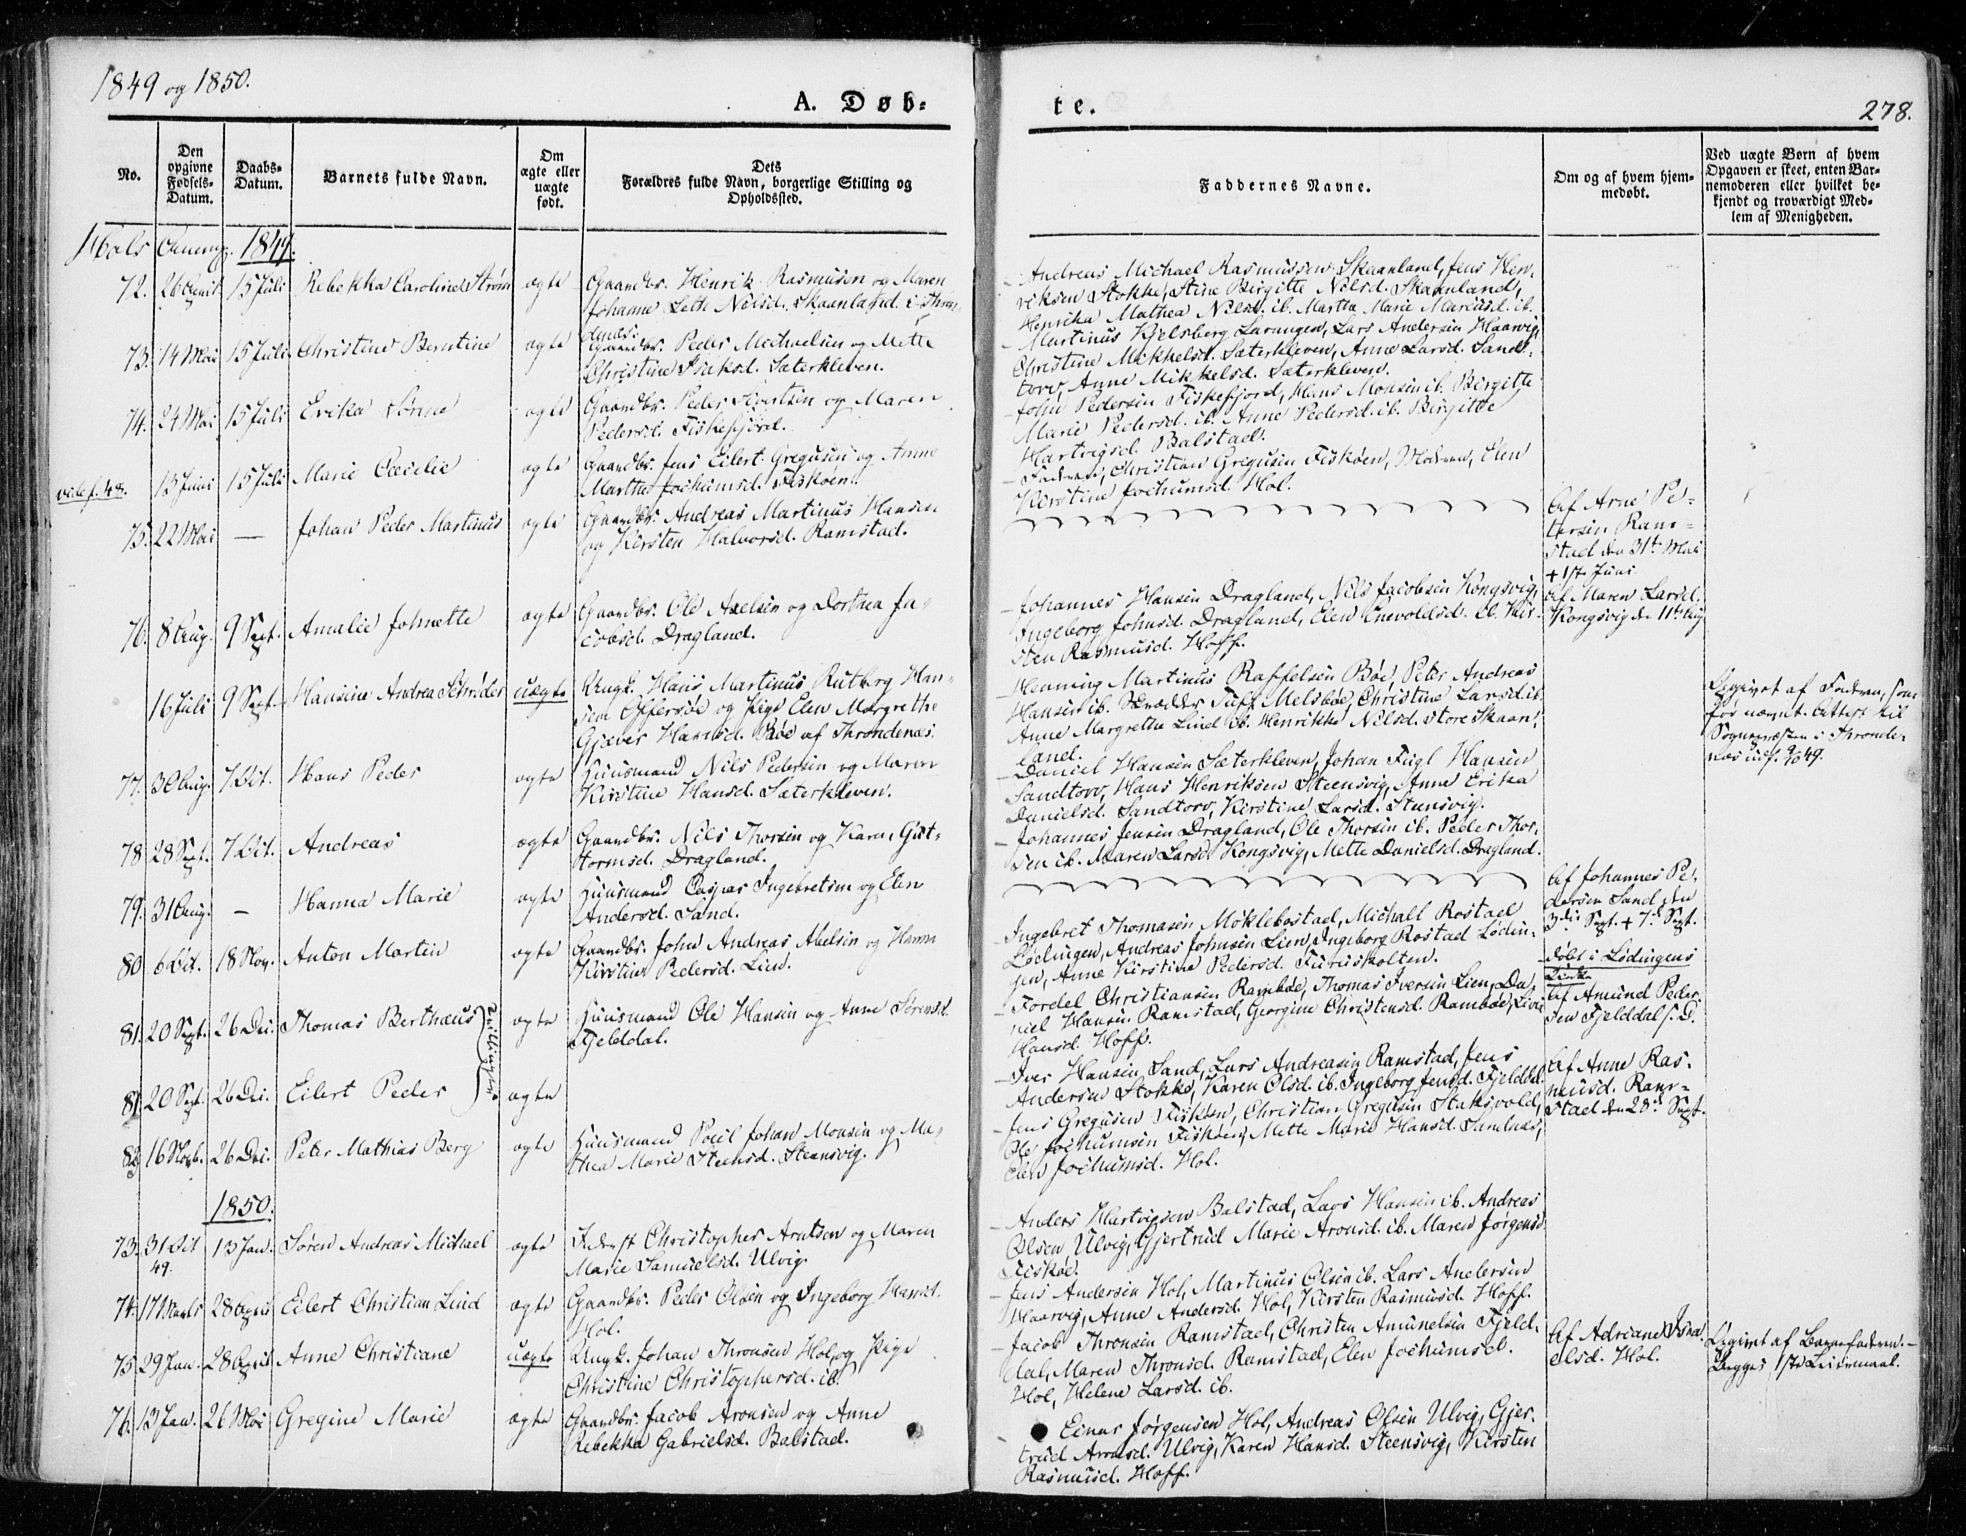 1849 og 1850.
A. Døb-
te.
278.
No.
Den opgivne Fødsels-Datum.
Daabs-Datum.
Barnets fulde Navn.
Om ægte eller uægte født.
Dets Forældres fulde Navn, borgerlige Stilling og Opholdssted.
Faddernes Navne.
Om og af hvem hjem-medøbt.
Ved uægte Børn af hvem Opgaven er skeet, enten Bar-nemoderen eller hvilket be-kjendt og troværdigt Med-lem af Menigheden.
Hols 1849.
72. 26 April 15 Juli Rebekka Caroline Strøm ægte Gaardbr. Henrik Rasmusen og Maren
Johanne Leth Nilsd. Skaanland i Thron-
denæs.
- Andreas Michael Rasmussen Skaanland, Jens Hen-
riksen Stokke, Stine Birgitte Nilsd. Skaanland,
Henrika Mathea Nilsd. ib. Martha Marie Mareusd. ib.
73. 14 Mai 15 Juli Christine Berntine ægte Gaardbr. Peder Michaelsen og Mette
Christine Isaksd. Sæterkleven.
- Martinus Kjelsberg Larangen, Lars Andersen Haarvig,
Christine Mikkelsd. Sæterkleven, Anne Larsd. Sand-
torv, Anne Mikkelsd. Sæterkleven.
74. 24 Mai 15 Juli Erika Sønne ægte Gaardbr. Peder Sivertsen og Maren
Pedersd. Fiskefjord.
- John Pedersen Fiskefjord, Hans Monsen ib. Birgitte
Marie Pedersd. ib. Anne Pedersd. ib. Birgitte
Hartvigsd. Balstad.
vide f. 48. 13 Juni 15 Juli Marie Cæcilie ægte Gaardbr. Jens Eilert Gregusen og Anne
Martha Jochumsd. Fiskøen.
- Faderen, Christian Gregusen Fiskøen, Moderen, Elen
Kirstine Jochumsd. Hol.
75. 22 Mai — Johan Peder Martinus ægte Gaardbr. Andreas Martinus Hansen
og Kirsten Halvorsd. Ramstad.
Af Arne Pe-
tersen Ram-
stad den 31te Mai
+ 1ste Juni
76. 8 Aug. 9 Sept. Amalie Johnette ægte Gaardbr. Ole Axelsen og Dorthea Ja-
cobsd. Dragland.
- Johannes Hansen Dragland, Nils Jacobsen Kongsvig,
Ingeborg Johnsd. Dragland, Elen Enevoldsd. ib. Kir-
sten Rasmusd. Hoff.
Af Maren Larsd.
Kongsvig d. 11te Aug
16 Juli 9 Sept. Hansine Andrea Schrøder uægte Ungk. Hans Martinus Rutberg Han-
sen og Pige Elen Margrethe
Gjæver Hansd. Bøe af Throndenæs.
- Henning Martinus Raffelsen Bøe, Peter Andreas
Hansen ib. Skrædder Tuff Melsbøe, Christine Larsd. ib.
Anne Margretha Lind ib. Henrikke Nilsd. store Skaan-
land.
Opgivet af Faderen, som
før nævnt. Attest til
Sognepræsten i Thronde-
næs 9/9 49.
77. 30 Aug. 7 Oct. Hans Peder ægte Huusmand Nils Pedersen og Maren
Kirstine Hansd. Sæterkleven.
- Daniel Hansen Sæterkleven, Johan Fugl Hansen
Sandtorv, Hans Henriksen Steensvig, Anne Erika
Danielsd. Sandtorv, Kirstine Larsd. Steensvig.
78 28 Sept. 7 Oct. Andreas ægte Gaardbr. Nils Thorsen og Karen Gut-
tormsd. Dragland.
- Johannes Jensen Dragland, Ole Thorsen ib. Peder Thor-
sen ib. Maren Larsd. Kongsvig, Mette Danielsd. Dragland.
79. 31 Aug. — Hanna Marie ægte Huusmand Caspar Ingebretsen og Elen
Andersd. Sand.
Af Johannes Pe-
dersen Sand den
3die Sept. + 7de Sept.
80 6 Oct. 18 Nov. Anton Martin ægte Gaardbr. John Andreas Abelsen og Hanna
Kirstine Pedersd. Lien.
- Ingebret Thomasen Møklebostad, Michall Rostad
Lødingen, Andreas Johnsen Lien, Ingeborg Rostad Lødin-
gen, Anne Kirstine Pedersd. Furuskolten.
Døbt i Lødingens
Kirke
81. 20 Sept. 26 Dec. Thomas Berthæus ægte Huusmand Ole Hansen og Anne Sørensd.
Fjelddal.
Tvillinger
- Fordel Christiansen Rambøe, Thomas Iversen Lien, Da-
niel Hansen Ramstad, Georgine Christensd. Rambøe, Livie
Hansd. Hoff.
Af Amund Peder-
sen Fjelddal s. D.
81 20 Sept. 26 Dec. Eilert Peder ægte
- Iver Hansen Sand, Lars Andreasen Ramstad, Jens
Andersen Stokke, Karen Olsd. ib. Ingeborg Jensd. Fjelddal
Af Anne Ras-
musd. Ram-
stad den 28de Sept.
82 16 Novb. 26 Dec. Peter Mathias Berg ægte Huusmand Poul Johan Monsen og Ma-
thea Marie Steensd. Steensvig.
- Jens Gregusen Fiskøen, Christian Gregusen Staksvold,
Ole Jochumsen Fiskøen, Mette Marie Hansd. Sandnæs,
Elen Jochumsd. Hol.
1850.
73. 31 Oct 49. 13 Jan. Søren Andreas Michael ægte Inderst Christopher Arntsen og Maren
Marie Samuelsd. Ulvig.
- Anders Hartvigsen Balstad, Lars Hansen ib. Andreas
Olsen Ulvig, Gjertrud Marie Aronsd. ib. Maren Jørgensd.
Fiskøe.
74. 17 Marts 28 April Eilert Christian Lind ægte Gaardbr. Peder Olsen og Ingeborg Hansd.
Hol.
- Jens Andersen Hol, Martinus Olsen ib. Lars Andersen
Haarvig, Anne Andersd. Hol, Kirsten Rasmusd. Hoff.
75 29 Jan. 28 April Anne Christiane uægte Ungk. Johan Thronsen Hol og Pige
Christine Christophersd. ib.
- Jacob Thronsen Ramstad, Christen Amundsen Fjeld-
dal, Maren Thronsd. Ramstad, Elen Jochumsd.
Hol, Helene Larsd. ib.
Af Adriane Isra-
elsd. Hol.
Opgivet af Barnefaderen. -
Begges 1ste Leiermaal.
76. 13 Jan. 26 Mai Gregine Marie ægte Gaardbr. Jacob Aronsen og Anne
Rebekka Gabrielsd. Balstad.
- Einar Jørgensen Hol, Andreas Olsen Ulvig, Gjer-
trud Aronsd. Ulvig, Karen Hansd. Steensvig, Kirsten
Rasmusd. Hoff.